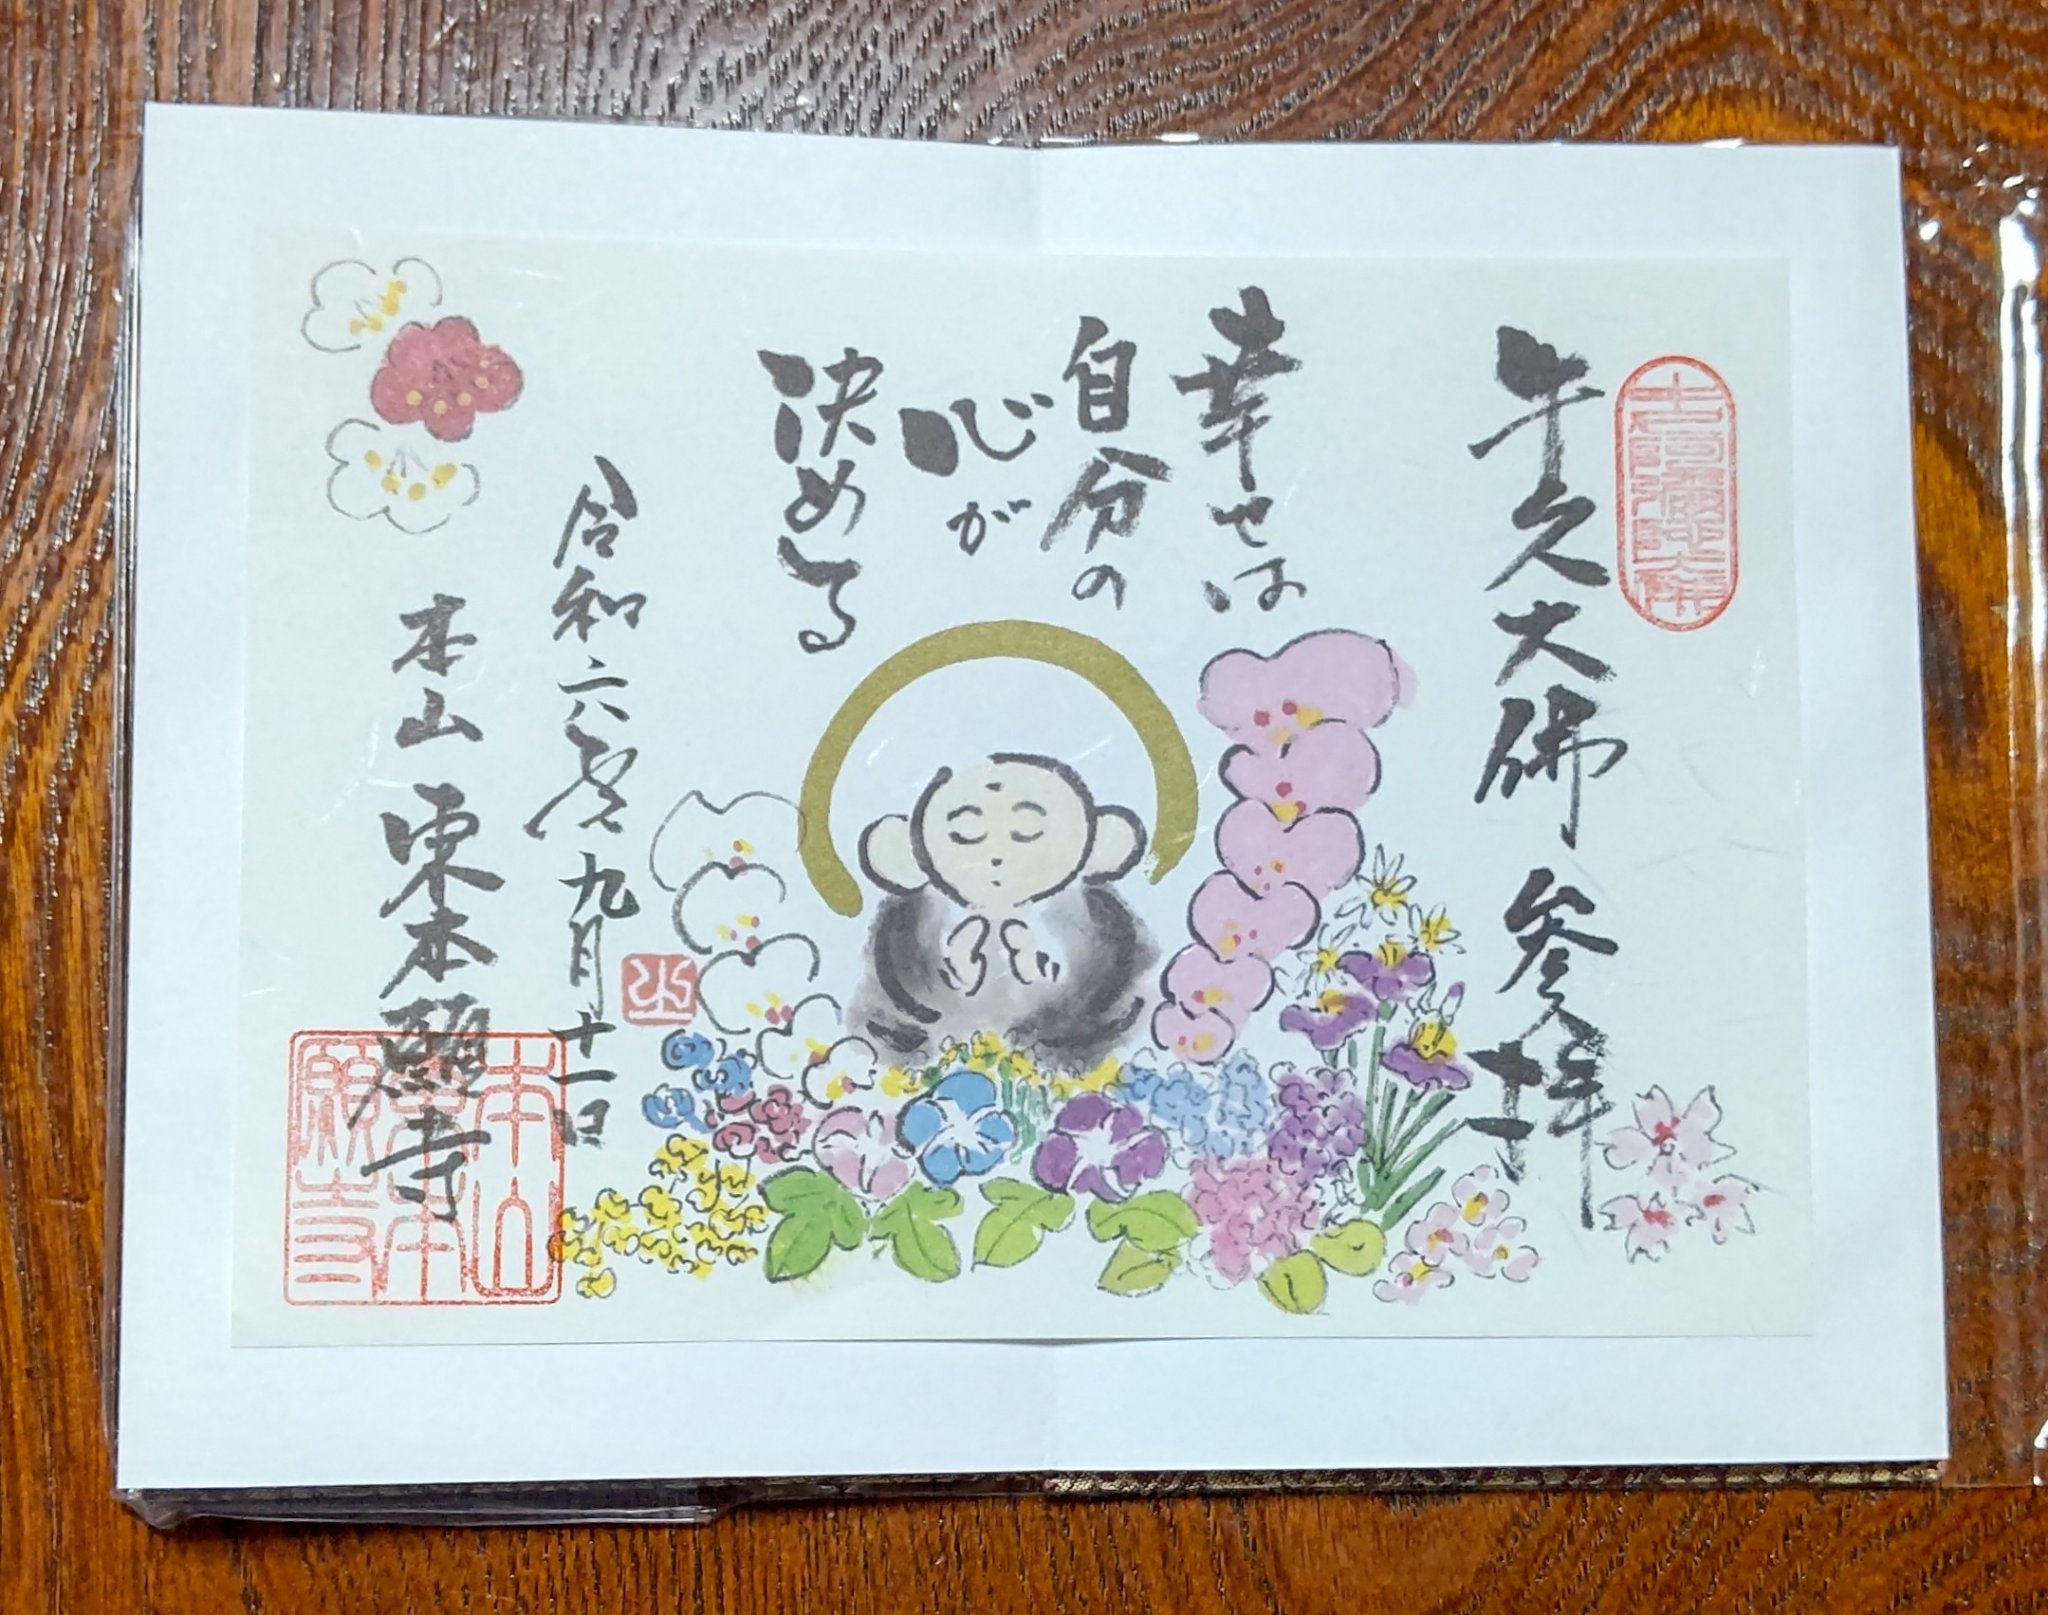 牛久大佛 参拝
幸せは
自分の
心が
決める
令和六年九月十一日
本山 東本願寺
本山
東本
願寺